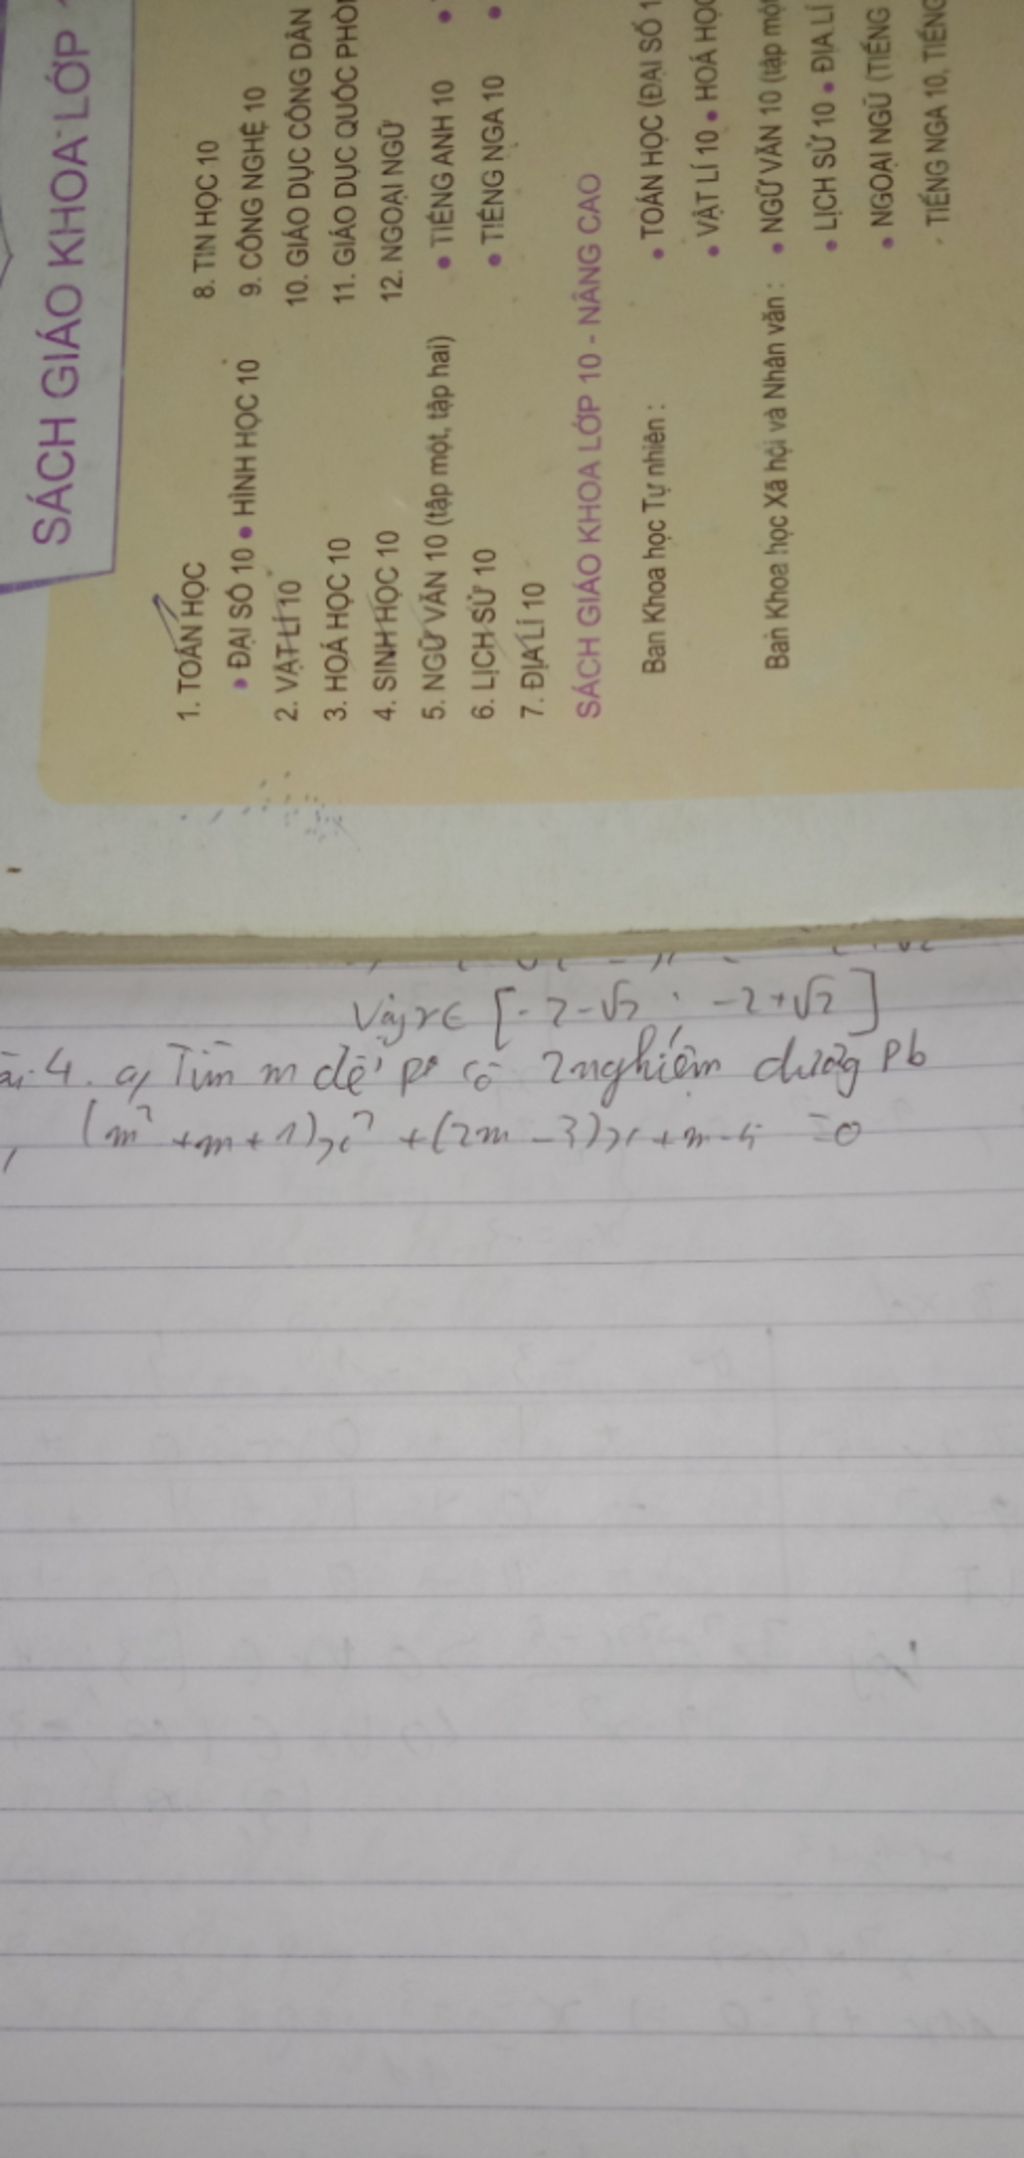 SÁCH GIÁO KHOA LỚP
1. TOÁN HỌC
• ĐẠI SỐ 10 • HÌNH HỌC 10
2. VẬT LÍ 10
3. HOÁ HỌC 10
4. SINH HỌC 10
5. NGỮ VĂN 10 (tập một, tập hai)
6. LỊCH SỬ 10
7. ĐỊA LÍ 10
8. TIN HỌC 10
9. CÔNG NGHỆ 10
10. GIÁO DỤC CÔNG DÂN
11. GIÁO DỤC QUỐC PHÒ
12. NGOẠI NGỮ
• TIẾNG ANH 10 •
• TIẾNG NGA 10 •
SÁCH GIÁO KHOA LỚP 10 - NÂNG CAO
Ban Khoa học Tự nhiên :
• TOÁN HỌC (ĐẠI SỐ 1
• VẬT LÍ 10 • HOÁ HỌC
Ban Khoa học Xã hội và Nhân văn :
• NGỮ VĂN 10 (tập một
• LỊCH SỬ 10 • ĐỊA LÍ
• NGOẠI NGỮ (TIẾNG
- TIẾNG NGA 10, TIẾNG
Vậy x ∈ [-2-√2 ; -2+√2]
4. a, Tìm m để pt có 2 nghiệm dương pb
(m² + m + 1)x² + (2m - 3)x + m - 5 = 0